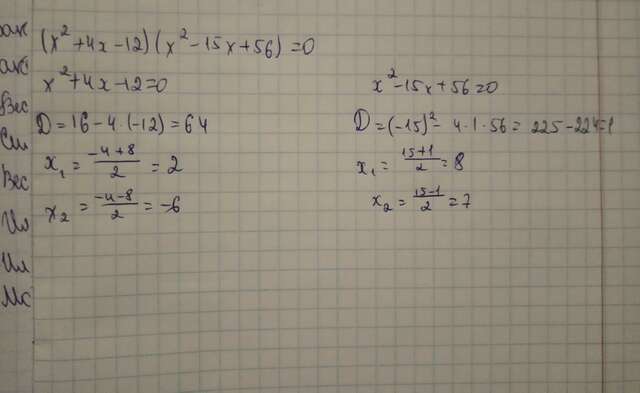 (x²+4x-12)(x²-15x+56)=0
x²+4x-12=0
D=16-4·(-12)=64
x₁=\frac{-4+8}{2}=2
x₂=\frac{-4-8}{2}=-6
x²-15x+56=0
D=(-15)²-4·1·56=225-224=1
x₁=\frac{15+1}{2}=8
x₂=\frac{15-1}{2}=7
Вес
Вес
Ил
Ил